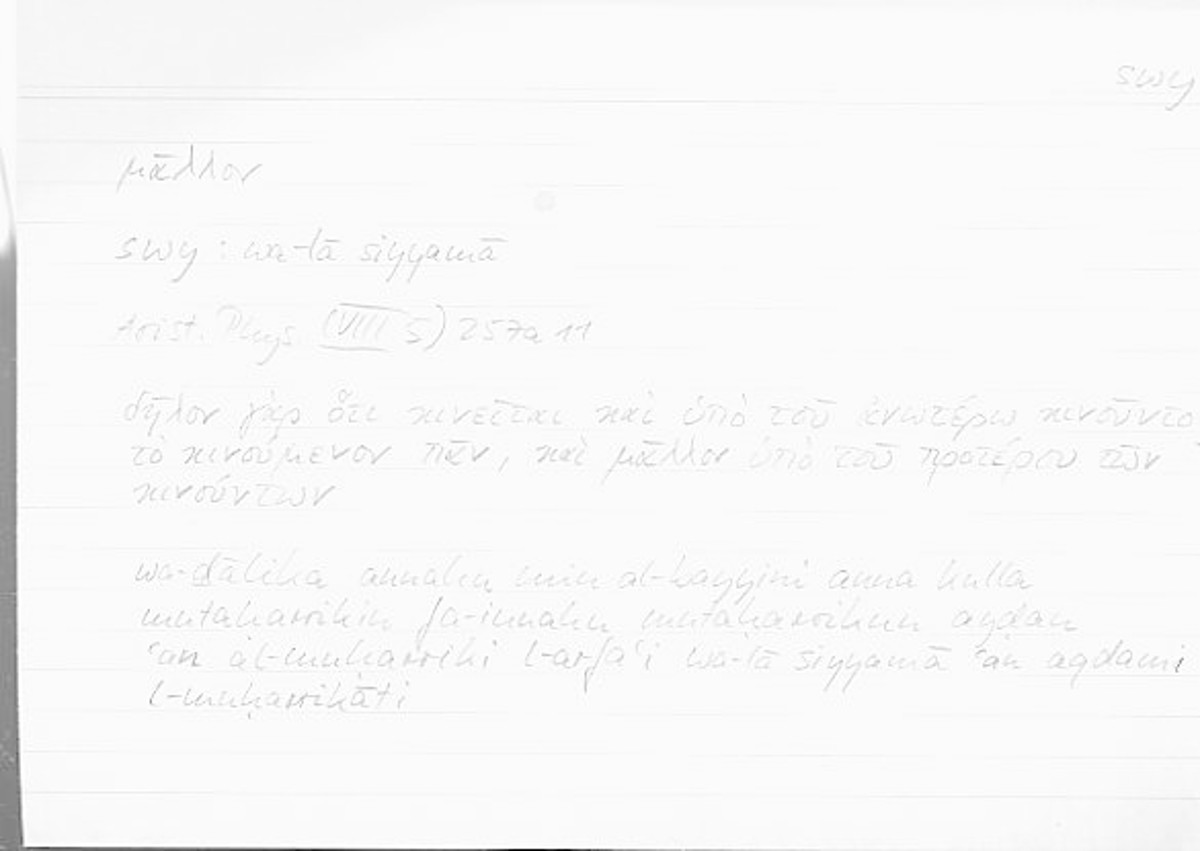 swy
μᾶλλον
swy : wa-lā siyyamā
Arist. Phys. (VIII 5) 257a 11
δῆλον γὰρ ὅτι κινεῖται καὶ ὑπὸ τοῦ ἀνωτέρω κινοῦντο
τὸ κινούμενον πᾶν, καὶ μᾶλλον ὑπὸ τοῦ προτέρου τῶν
κινούντων
wa-ḏālika annahu min al-bayyini anna kulla
mutaḥarrikin fa-innahu mutaḥarrikun ayḍan
ʿan al-muḥarriki l-arfaʿi wa-lā siyyamā ʿan aqdami
l-muḥarrikāti